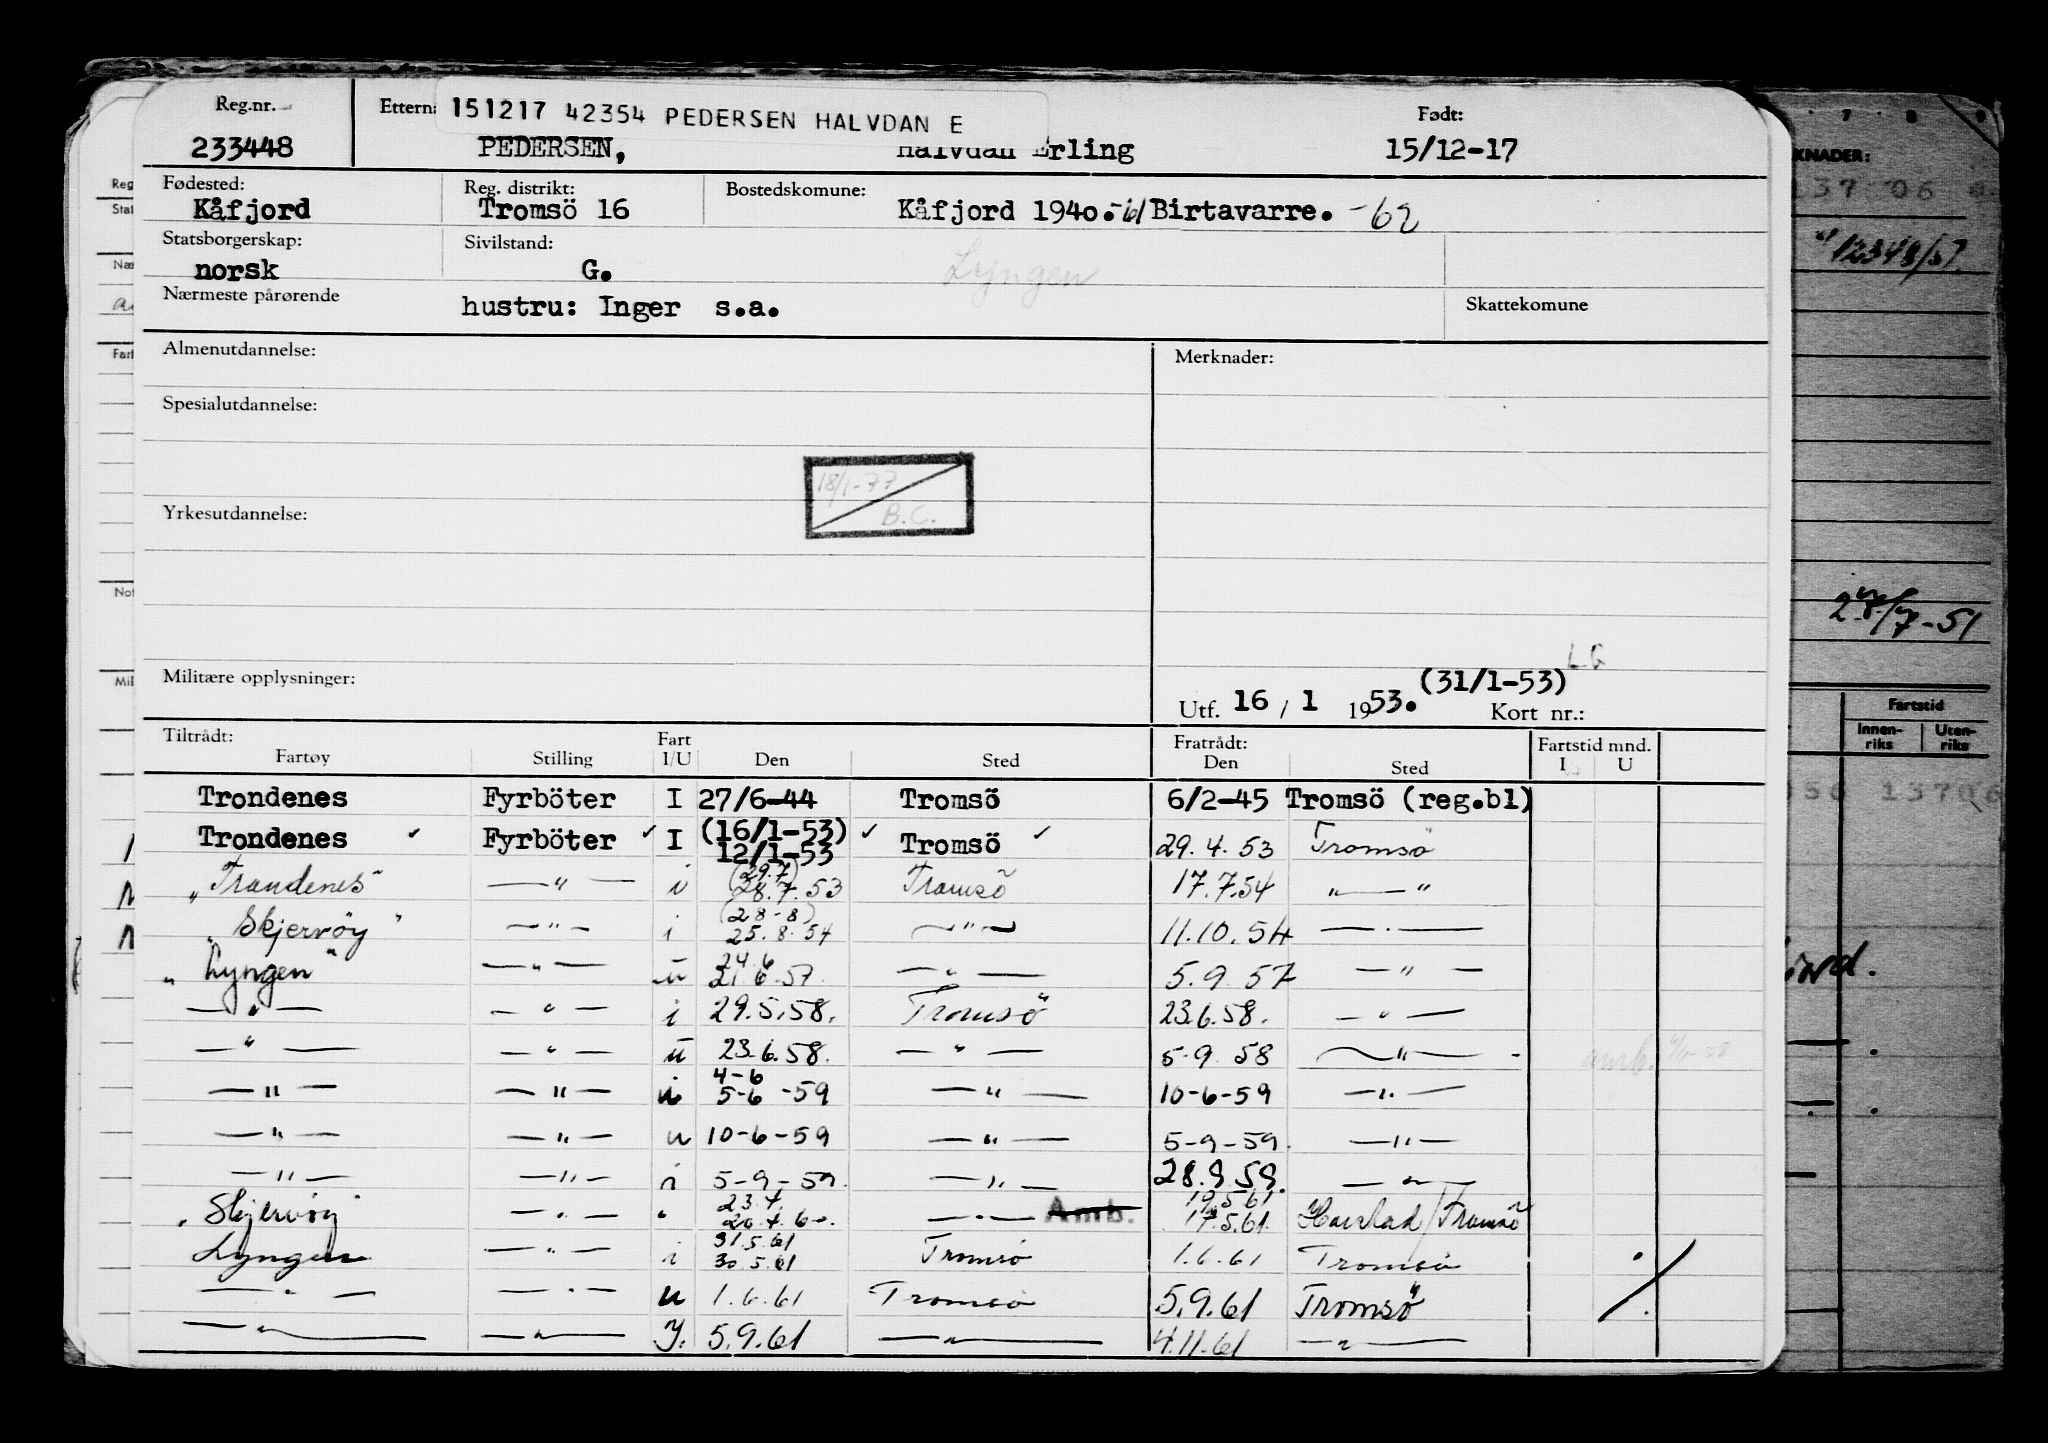 Reg.nr.
233448
Ettern: 151217 42354 PEDERSEN HALVDAN E
PEDERSEN, Halvdan Erling
Født:
15/12-17
Fødested:
Kåfjord
Reg. distrikt:
Tromsö 16
Bostedskomune:
Kåfjord 1940.-61 Birtavarre. -62
Statsborgerskap:
norsk
Sivilstand:
G.
Lyngen
Nærmeste pårørende
hustru: Inger s.a.
Skattekomune
Almenutdannelse:
Merknader:
Spesialutdannelse:
18/1-77
B.C.
Yrkesutdannelse:
Militære opplysninger:
Utf. 16 / 1 1953. (31/1-53)
Kort nr.:
Tiltrådt:
Fartøy Stilling Fart I/U Den Sted
Fratrådt:
Den Sted
Fartstid mnd.
I U
Trondenes Fyrböter I 27/6-44 Tromsö 6/2-45 Tromsö (reg.bl)
Trondenes ✓ Fyrböter ✓ I (16/1-53) 12/1-53 ✓ Tromsö ✓ 29.4.53 Tromsö
"Trondenes" —"— i (29.7) 28.7.53 Tromsö 17.7.54 "—"
"Skjervöy" —"— i (28-8) 25.8.54 —"— 11.10.54 —"—
"Lyngen" —"— u 24.6 21.6.57. —"— 5.9.57 —"—
—"— —"— i 29.5.58. Tromsö 23.6.58. —"—
—"— —"— u 23.6.58. —"— 5.9.58 —"—
—"— —"— i 4-6 5-6-59 —"— 10-6-59 —"—
—"— —"— u 10-6-59 —"— 5-9-59. —"—
—"— —"— i 5-9-59. —"— 28.9.59. —"—
Skjervöy —"— " 23.4. 20.4.60. —"— Amb. 19.5.61 17.5.61 Harstad/Tromsö
Lyngen —"— i 31.5.61 30.5.61 Tromsö 1.6.61 Tromsö
—"— —"— u 1.6.61 Tromsö 5.9.61 Tromsö
—"— —"— I. 5.9.61 —"— 4.11.61 —"—
KNADER:
12348/51.
28/7-51
Fartstid
Innen-riks Uten-riks